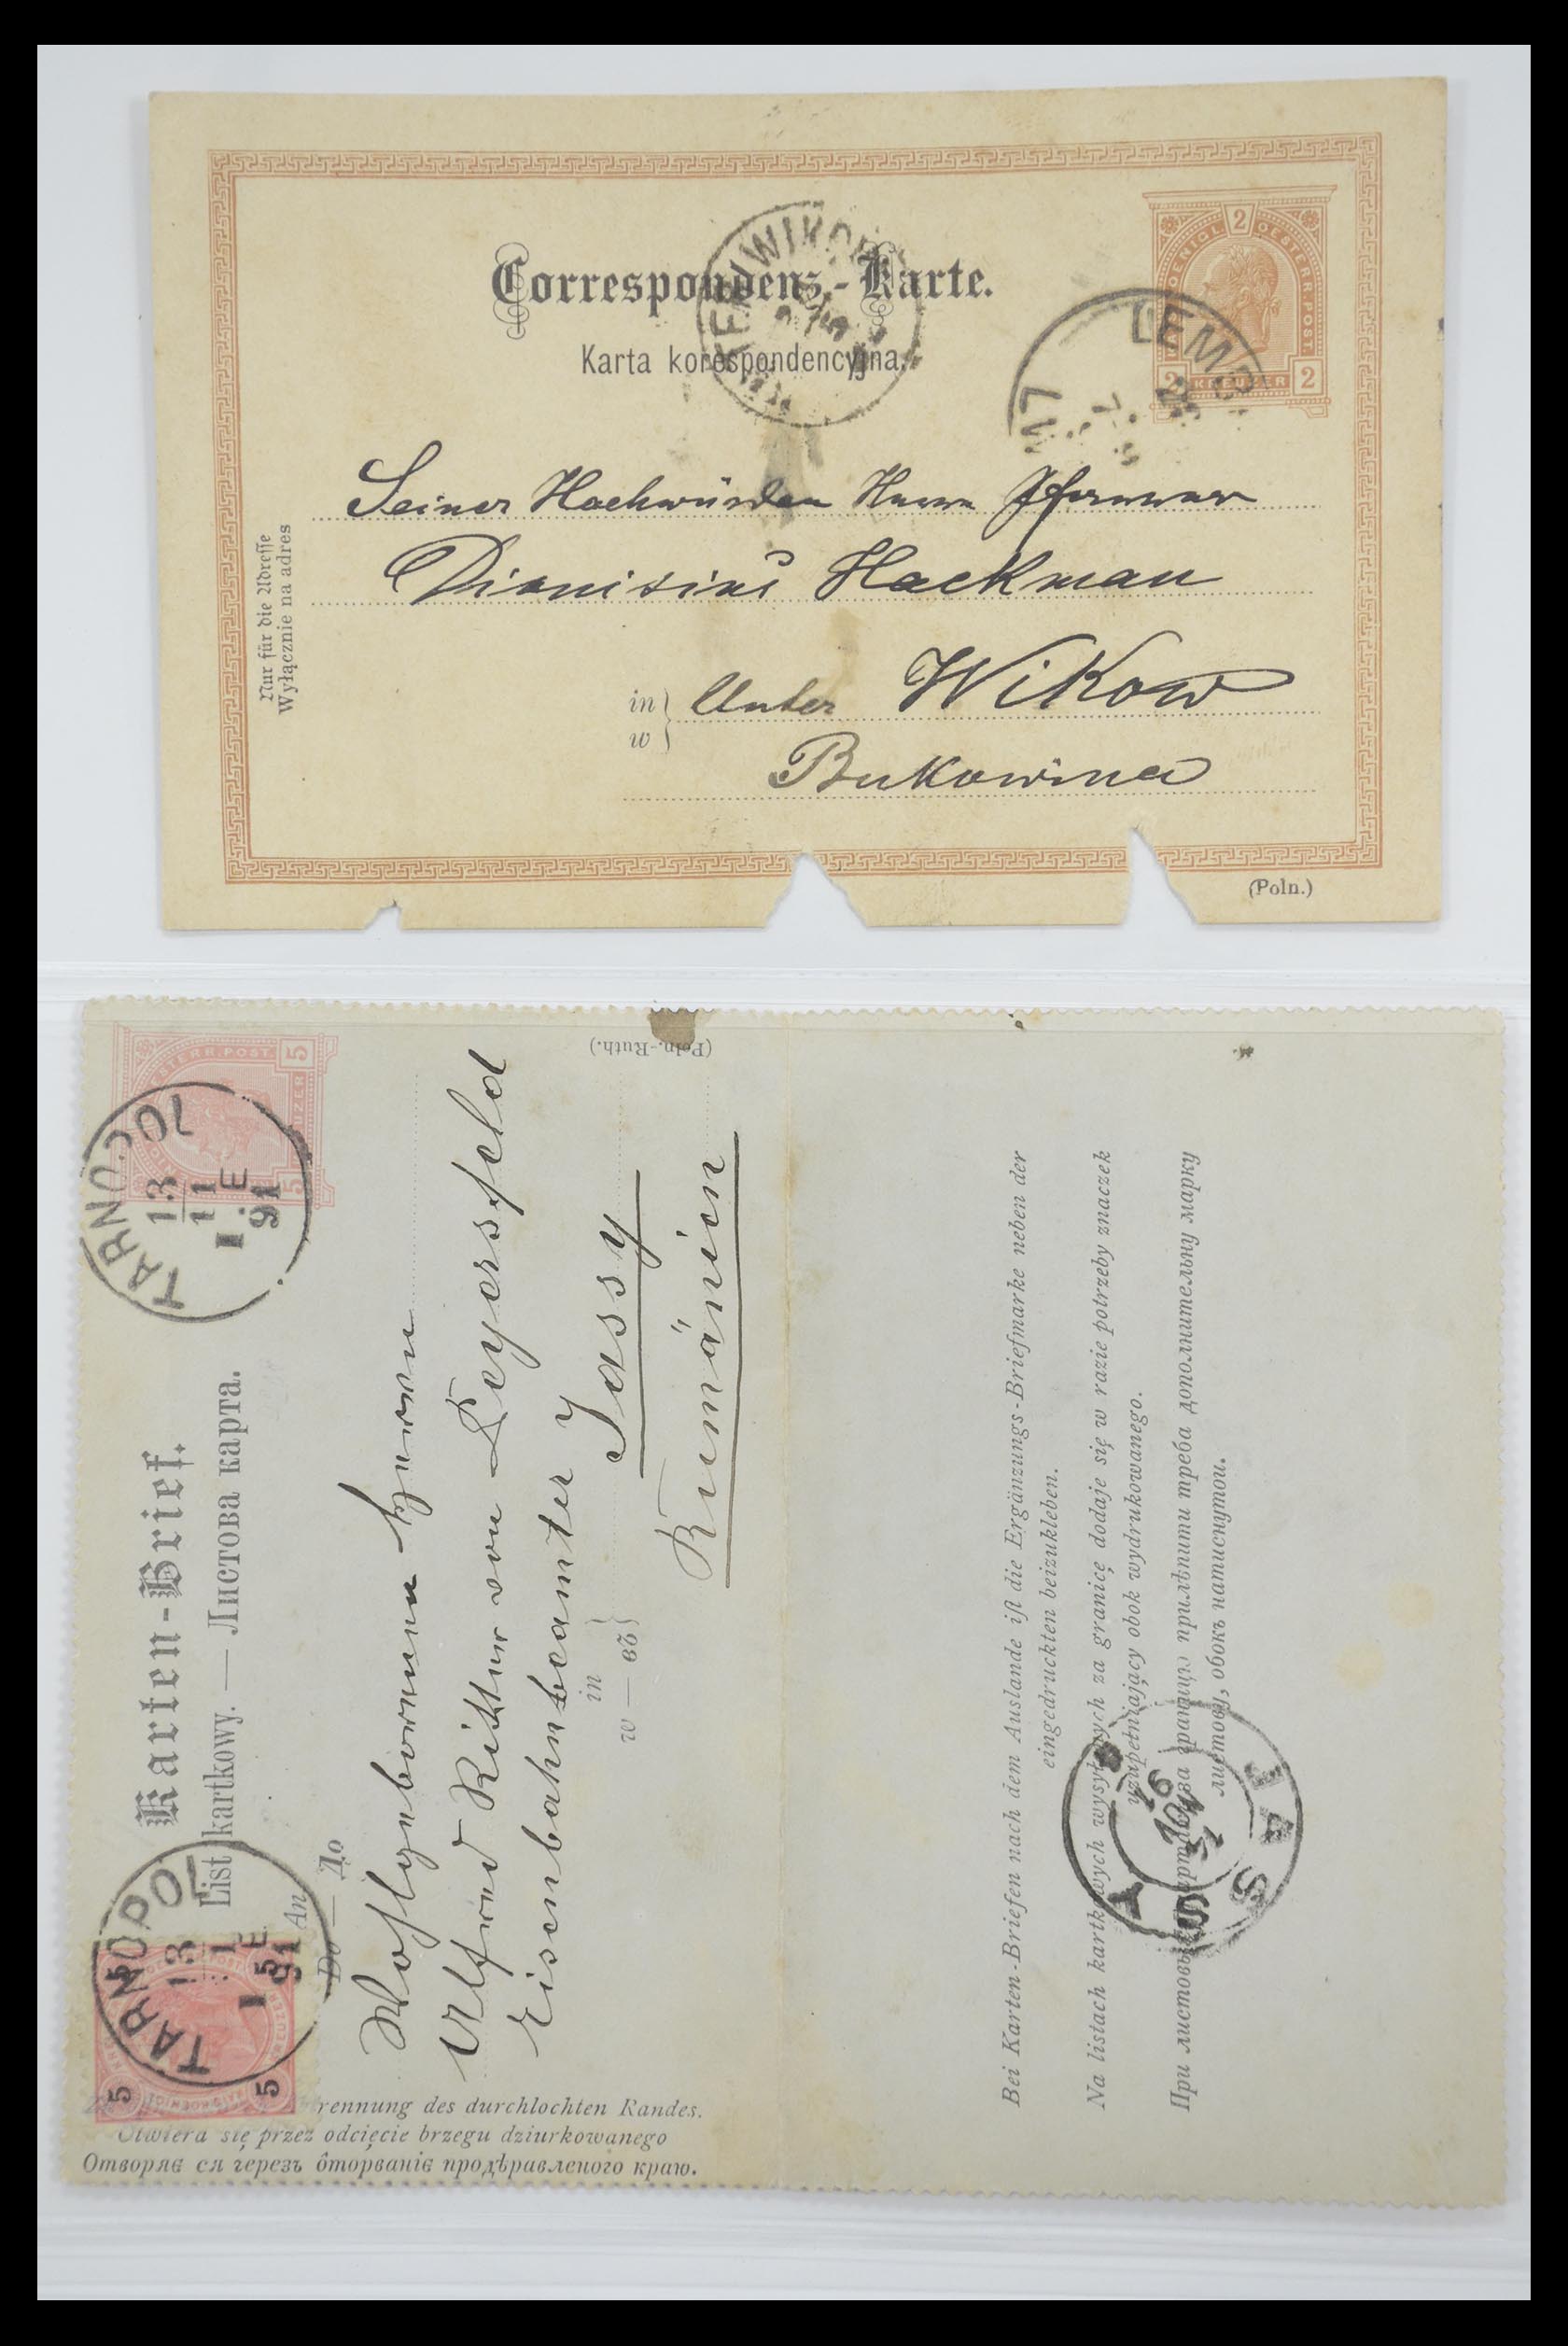 Correspondenz-Karte.
Karta korespondencyjna.
2
2 KREUZER 2
LEMB
Nur für die Adresse
Wyłącznie na adres
Seiner Hochwürden Herrn Pfarrer
Dionisius Hackman
in
w
Unter Wikow
Bukowina
(Poln.)
Karten-Brief.
List kartkowy. — Листова карта.
An
Do — До
Wohlgeborenen Herrn
Alfred Ritter von Leyersfeld
Eisenbahnbeamter
in
w — въ
Jassy
Rumänien
(Poln.-Ruth.)
TARNOPOL
13
11
1.E
91
TARNOPOL
13
11
1.E
91
5
5
rennung des durchlochten Randes.
Otwiera się przez odcięcie brzegu dziurkowanego
Отворяє ся черезъ ôторванiє продѣравленого краю.
Bei Karten-Briefen nach dem Auslande ist die Ergänzungs-Briefmarke neben der
eingedruckten beizukleben.
Na listach kartkowych wysyłanych za granicę dodaje się w razie potrzeby znaczek
uzupełniający obok wydrukowanego.
При листовыхъ картахъ за границю прилѣпити треба дополнительну марку
листову, обокъ натиснутои.
JASSY
16 NOV